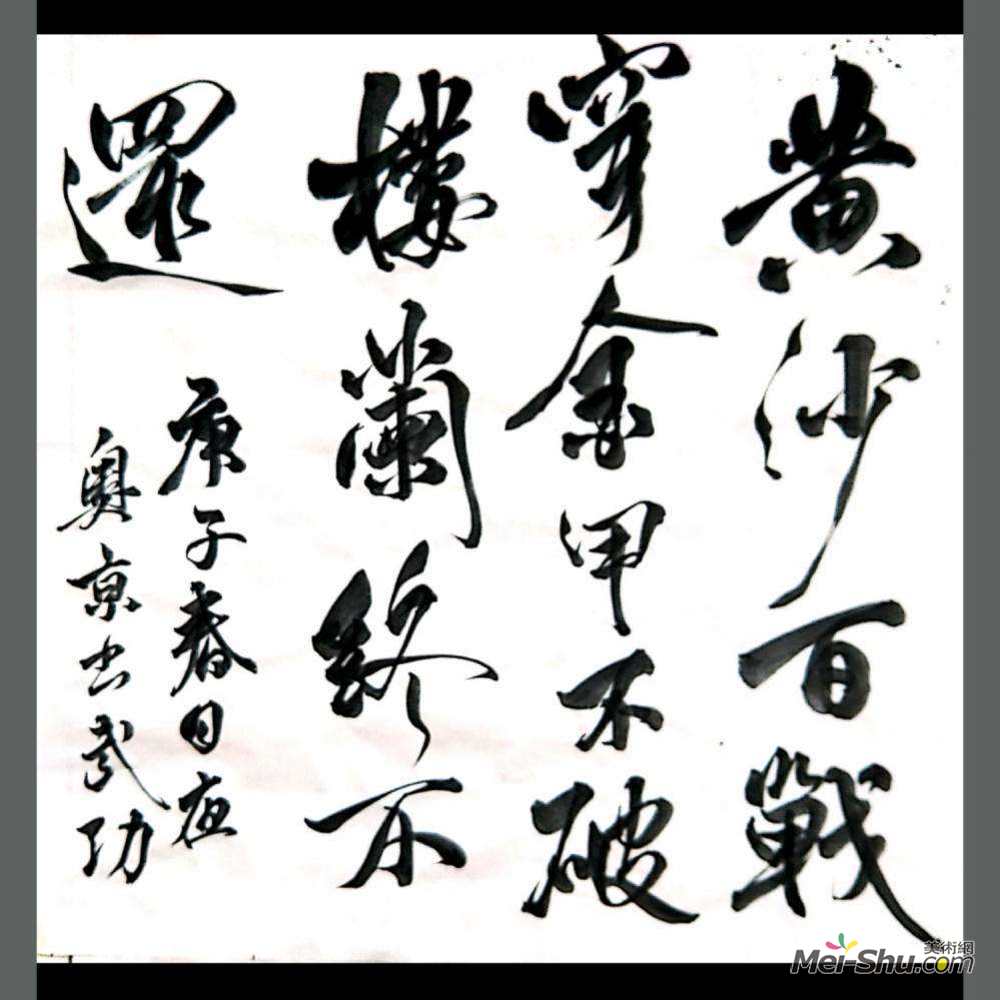 黄沙百戰
穿金甲不破
樓蘭終不
還
庚子春日夜
奥京书武功
美術網
Mei-Shu.com